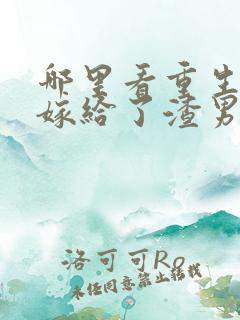 哪里看重生
嫁给了渣男
洛可可Ro
未经同意禁止转载